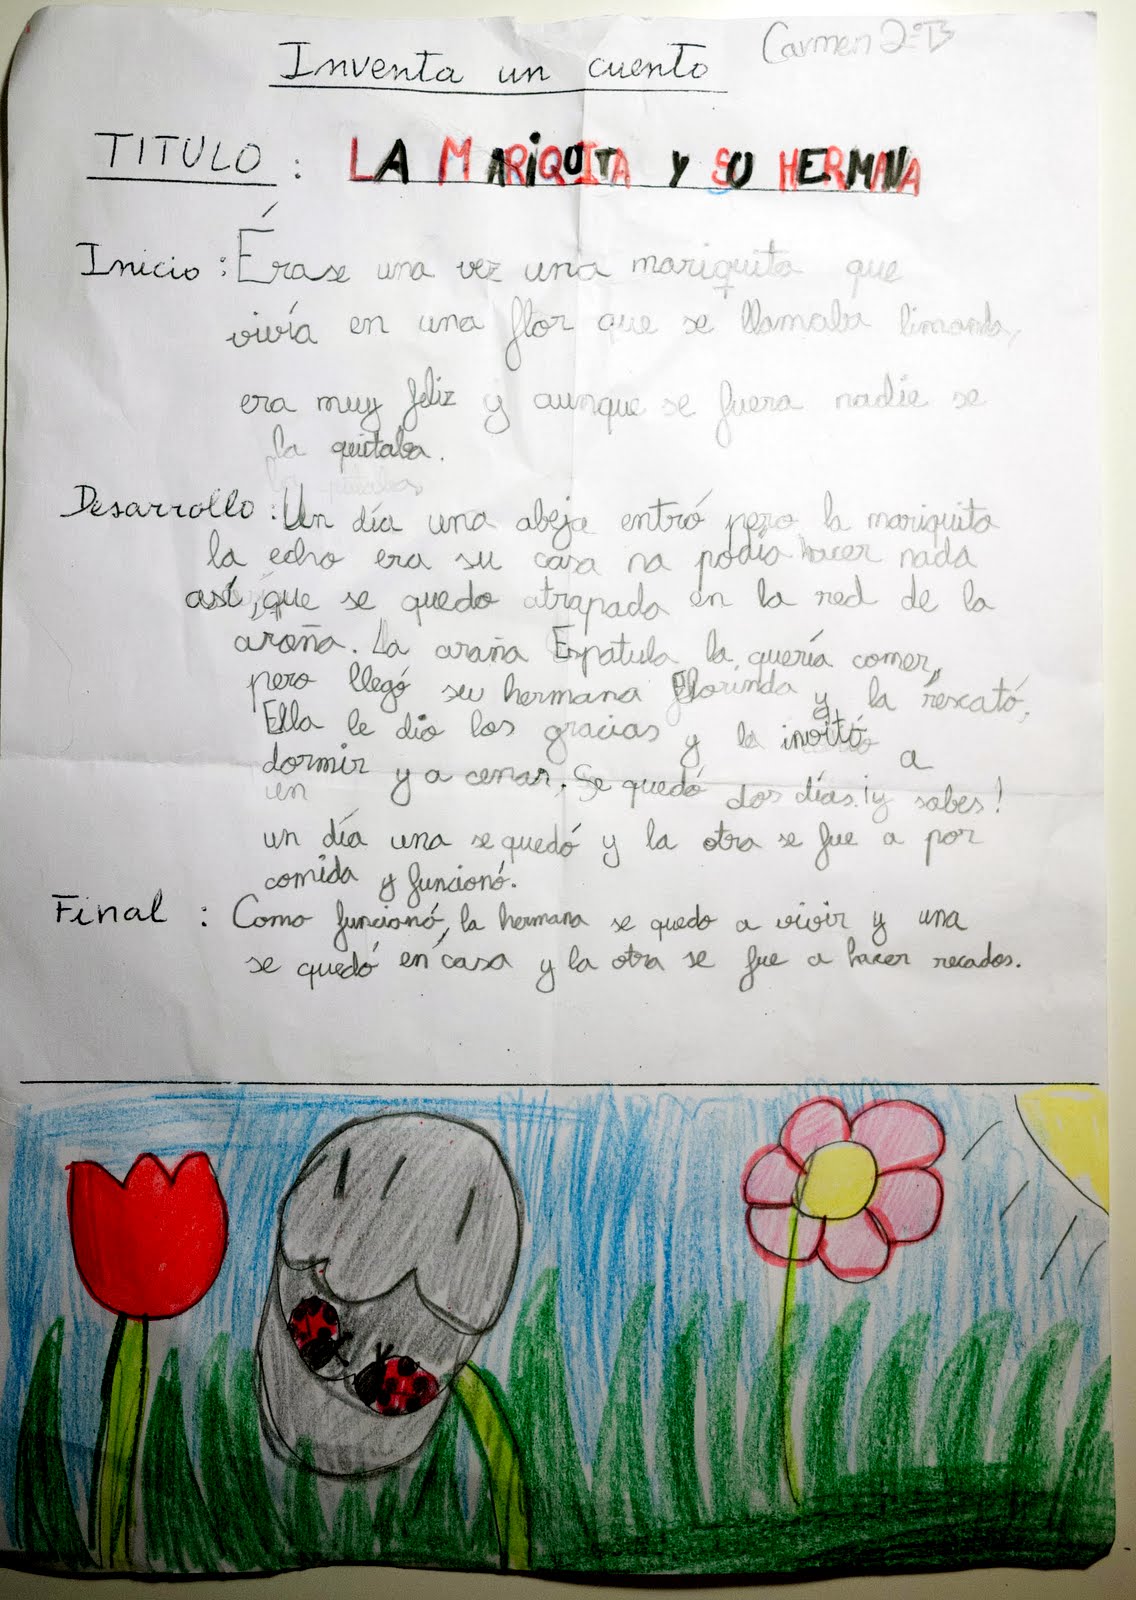 Carmen 2ºB
Inventa un cuento
TITULO : LA MARIQUITA Y SU HERMANA
Inicio : Érase una vez una mariquita que
vivía en una flor que se llamaba limanda,
era muy feliz y aunque se fuera nadie se
la quitaba.
Desarrollo : Un día una abeja entró pero la mariquita
la echo era su casa no podía hacer nada
así, que se quedo atrapada en la red de la
araña. La araña Espatula la quería comer,
pero llegó su hermana Florinda y la rescató,
Ella le dio las gracias y la invitó a
dormir y a cenar. Se quedó dos días. ¡y sabes!
un
un día una se quedó y la otra se fue a por
comida y funcionó.
Final : Como funcionó, la hermana se quedo a vivir y una
se quedó en casa y la otra se fue a hacer recados.